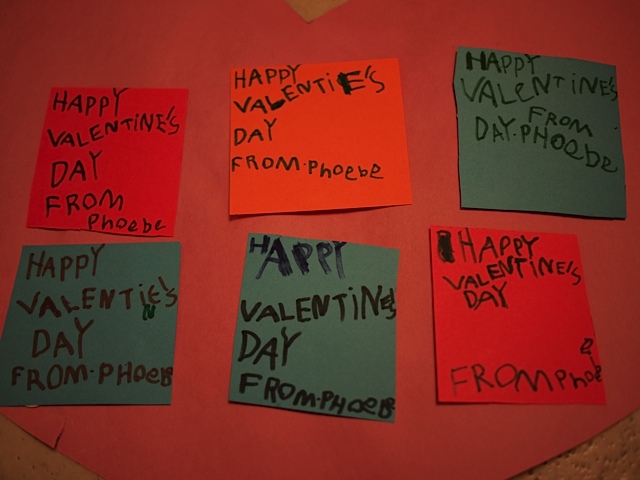 HAPPY
VALENTINE'S
DAY
FROM
Phoebe
HAPPY
VALENTIE'S
DAY
FROM·Phoebe
HAPPY
VALENTINE'S
FROM
DAY·PHOebe
HAPPY
VALENTIE'S
N
DAY
FROM·PHOeB
HAPPY
VALENTINE'S
DAY
FROM·PHOeB
HAPPY
VALENTINE'S
DAY
e
FROMPhoe